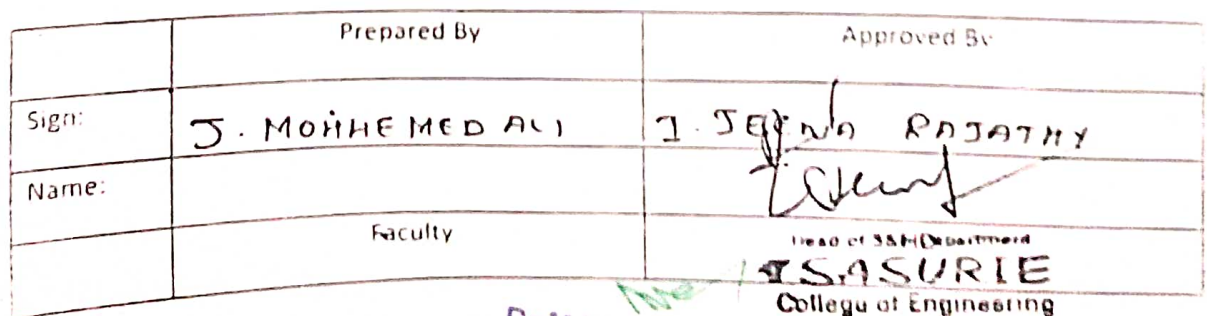 Prepared By Approved By
Sign: J. MOHHEMED ALI I. JEENA RAJATHY
Name:
Faculty Head of S&H Department
SASURIE
College of Engineering